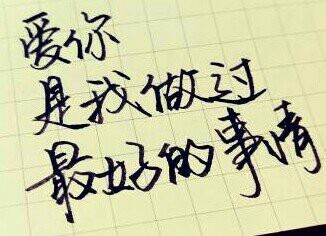 爱你
是我做过
最好的事情